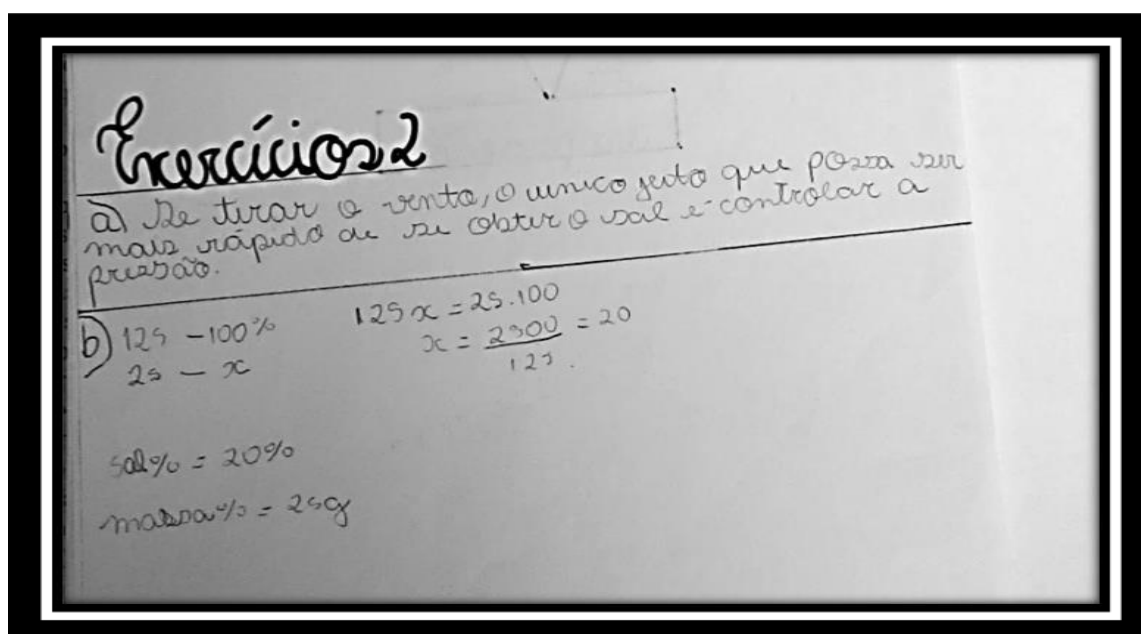 Exercícios 2
a) Se tirar o vento, o unico jeito que possa ser
mais rápido de se obter o sal é controlar a
pressão.
b) 125 - 100% 125x = 25.100
25 - x x = 2500/125 = 20
sal% = 20%
massa% = 25g